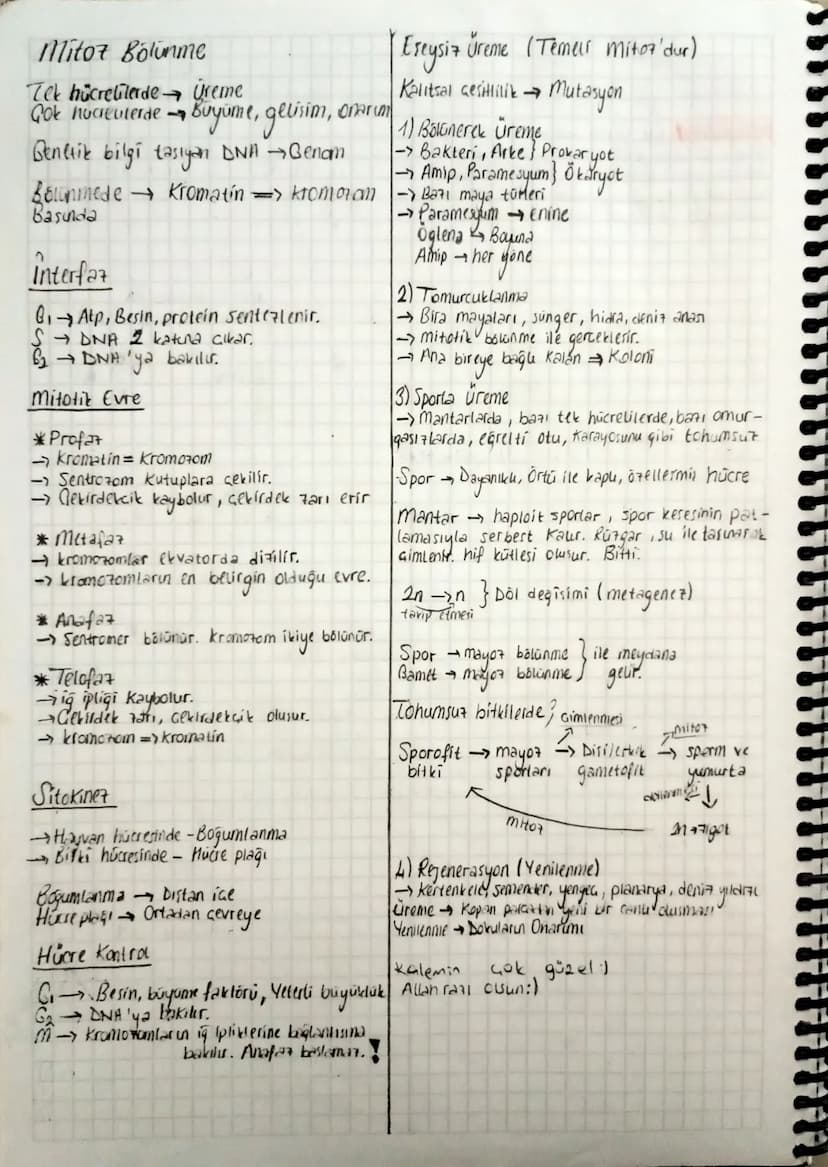 Mitoz Bölünme
Tek hücrelilerde → Üreme
Çok hücrelilerde → Büyüme, gelişim, onarım
Genetik bilgi taşıyan DNA → Genom
Bölünmede → Kromatin => kromozom
Başında
İnterfaz
G1 → Atp, Besin, protein sentezlenir.
S → DNA 2 katına çıkar.
G2 → DNA'ya bakılır.
Mitotik Evre
* Profaz
→ Kromatin = Kromozom
→ Sentrozom kutuplara çekilir.
→ Çekirdekcik kaybolur, çekirdek zarı erir
* Metafaz
→ kromozomlar ekvatorda dizilir.
→ kromozomların en belirgin olduğu evre.
* Anafaz
→ Sentromer bölünür. kromozom ikiye bölünür.
* Telofaz
→ iğ ipliği kaybolur.
→ Çekirdek zarı, çekirdekçik oluşur.
→ kromozom => kromatin
Sitokinez
→ Hayvan hücresinde - Boğumlanma
→ Bitki hücresinde - Hücre plağı
Boğumlanma → Dıştan içe
Hücre plağı → Ortadan çevreye
Hücre Kontrol
G1 → Besin, büyüme faktörü, Yeterli büyüklük
G2 → DNA'ya bakılır.
M → Kromozomların iğ ipliklerine bağlanmasına
bakılır. Anafaz başlamaz. !
Eşeysiz Üreme (Temeli mitoz'dur)
Kalıtsal çeşitlilik → Mutasyon
1) Bölünerek Üreme
→ Bakteri, Arke } Prokaryot
→ Amip, Paramesyum } Ökaryot
→ Bazı maya türleri
→ Paramesyum → enine
Öglena → Boyuna
Amip → her yöne
2) Tomurcuklanma
→ Bira mayaları, sünger, hidra, deniz anası
→ mitotik bölünme ile gerçekleşir.
→ Ana bireye bağlı kalan => Koloni
3) Sporla Üreme
→ Mantarlarda, bazı tek hücrelilerde, bazı omur-
gasızlarda, eğrelti otu, karayosunu gibi tohumsuz
Spor → Dayanıklı, Örtü ile kaplı, özelleşmiş hücre
Mantar → haploit sporlar, spor kesesinin pat-
lamasıyla serbest kalır. Rüzgar, su ile taşınarak
çimlenir. hif kütlesi oluşur. Bitti.
2n → n } Döl değişimi (metagenez)
takip etmesi
Spor → mayoz bölünme } ile meydana
Gamet → mayoz bölünme } gelir.
Tohumsuz bitkilerde;
çimlenmesi
mitoz
Sporofit → mayoz → Dişi/erkek → sperm ve
bitki sporları gametofit yumurta
döllenme
mitoz
2n → zigot
4) Rejenerasyon (Yenilenme)
→ kertenkele, semender, yengeç, planarya, deniz yıldızı
Üreme → Kopan parçanın yeni bir canlı oluşması
Yenilenme → Dokuların Onarımı
Kalemin çok güzel :)
Allah razı olsun :)